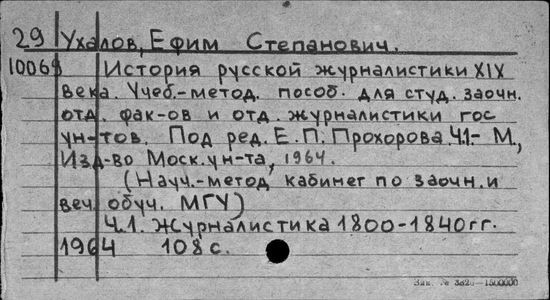 29 Ухалов, Ефим Степанович.
10069 История русской журналистики XIX
века. Учеб.-метод. пособ. для студ. заочн.
отд. фак-ов и отд. журналистики гос
ун-тов. Под ред. Е.П. Прохорова. Ч.1.- М.,
Изд-во Моск. ун-та, 1964.
(Науч.-метод кабинет по заочн. и
веч. обуч. МГУ)
Ч.1. Журналистика 1800-1840 гг.
1964 108 с.
Зак. № 1500000